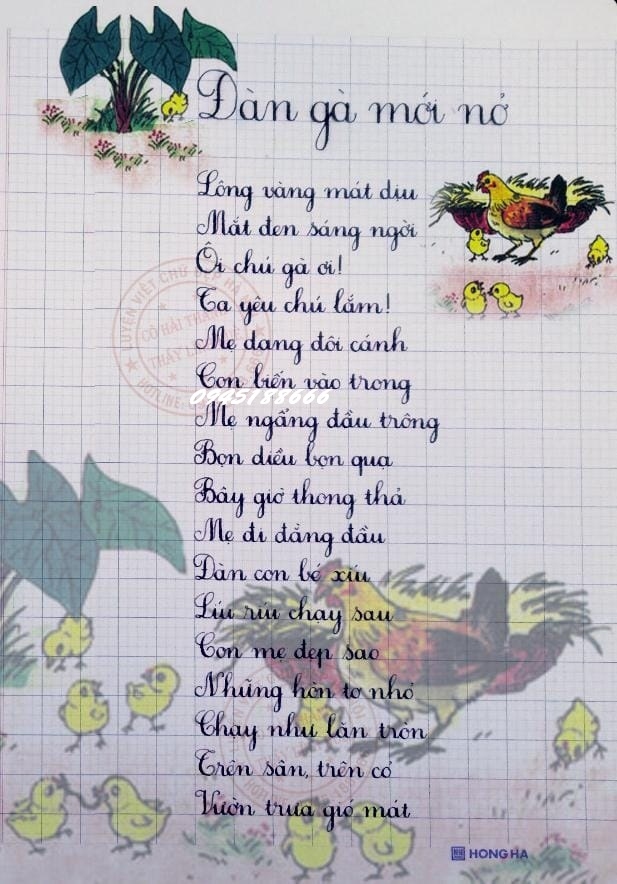 Đàn gà mới nở
Lông vàng mát dịu
Mắt đen sáng ngời
Ôi chú gà ơi!
Ta yêu chú lắm!
LUYỆN VIẾT CHỮ ĐẸP HÀ
CÔ HẢI
THẦY
HOTLINE:
Mẹ dang đôi cánh
Con biến vào trong
Mẹ ngẩng đầu trông
Bọn diều bọn quạ
Bây giờ thong thả
Mẹ đi đằng đầu
Đàn con bé xíu
Líu ríu chạy sau
Con mẹ đẹp sao
Những hòn tơ nhỏ
Chạy như lăn tròn
Trên sân, trên cỏ
Vườn trưa gió mát
HONG HA